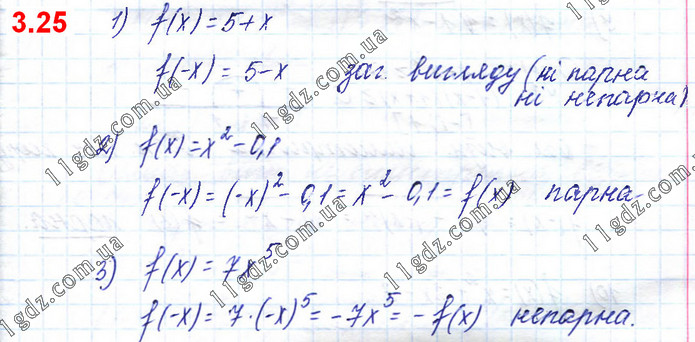 3.25 1) f(x) = 5+x
f(-x) = 5-x заг. вигляду (ні парна
ні непарна)
2) f(x) = x² - 0,1
f(-x) = (-x)² - 0,1 = x² - 0,1 = f(x) парна
3) f(x) = 7x⁵
f(-x) = 7·(-x)⁵ = -7x⁵ = -f(x) непарна.
11gdz.com.ua
11gdz.com.ua
11gdz.com.ua
11gdz.com.ua
11gdz.com.ua
11gdz.com.ua